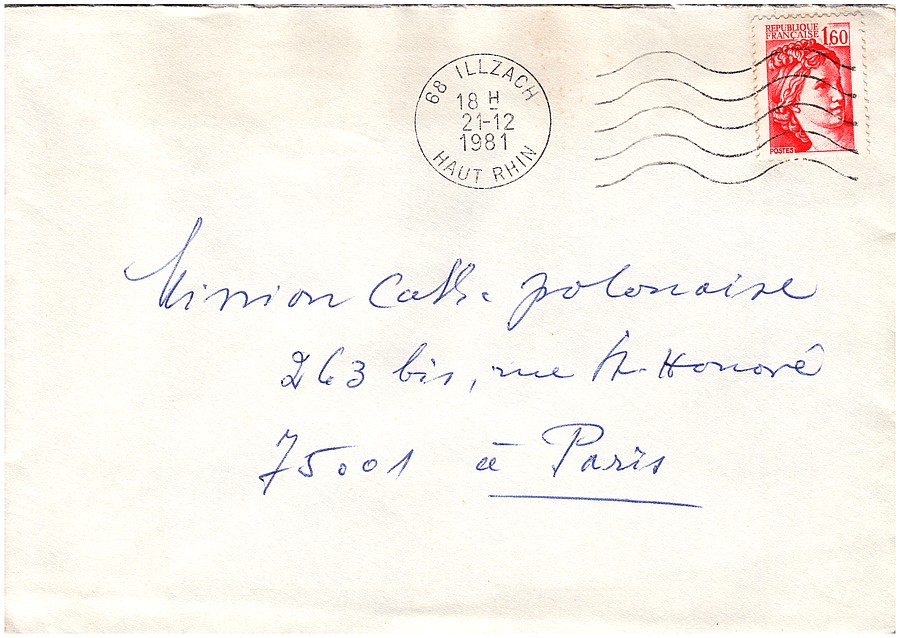 REPUBLIQUE
FRANÇAISE 1,60
POSTES
68 ILLZACH
18 H
21-12
1981
HAUT RHIN
Mission Cath. polonaise
263 bis, rue St. Honoré
75001 à Paris